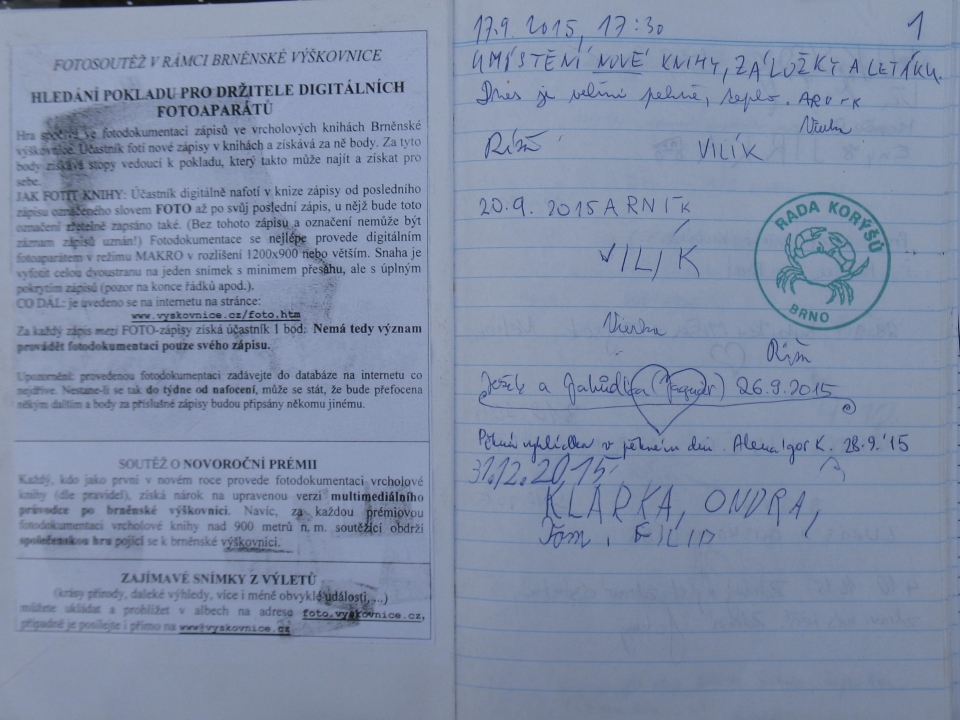 FOTOSOUTĚŽ V RÁMCI BRNĚNSKÉ VÝŠKOVNICE
HLEDÁNÍ POKLADU PRO DRŽITELE DIGITÁLNÍCH
FOTOAPARÁTŮ
Hra spočívá ve fotodokumentaci zápisů ve vrcholových knihách Brněnské
výškovnice. Účastník fotí nové zápisy v knihách a získává za ně body. Za tyto
body získává stopy vedoucí k pokladu, který takto může najít a získat pro
sebe.
JAK FOTIT KNIHY: Účastník digitálně nafotí v knize zápisy od posledního
zápisu označeného slovem FOTO až po svůj poslední zápis, u nějž bude toto
označení zřetelně zapsáno také. (Bez tohoto zápisu a označení nemůže být
záznam zápisů uznán!) Fotodokumentace se nejlépe provede digitálním
fotoaparátem v režimu MAKRO v rozlišení 1200x900 nebo větším. Snaha je
vyfotit celou dvoustranu na jeden snímek s minimem přesahu, ale s úplným
pokrytím zápisů (pozor na konce řádků apod.).
CO DÁL: je uvedeno se na internetu na stránce:
www.vyskovnice.cz/foto.htm
Za každý zápis mezi FOTO-zápisy získá účastník 1 bod. Nemá tedy význam
provádět fotodokumentaci pouze svého zápisu.
Upozornění: provedenou fotodokumentaci zadávejte do databáze na internetu co
nejdříve. Nestane-li se tak do týdne od nafocení, může se stát, že bude přefocena
někým dalším a body za příslušné zápisy budou připsány někomu jinému.
SOUTĚŽ O NOVOROČNÍ PRÉMII
Každý, kdo jako první v novém roce provede fotodokumentaci vrcholové
knihy (dle pravidel), získá nárok na upravenou verzi multimediálního
průvodce po brněnské výškovnici. Navíc, za každou prémiovou
fotodokumentaci vrcholové knihy nad 900 metrů n. m. soutěžící obdrží
společenskou hru pojící se k brněnské výškovnici.
ZAJÍMAVÉ SNÍMKY Z VÝLETŮ
(krásy přírody, daleké výhledy, více i méně obvyklé události, ...)
můžete ukládat a prohlížet v albech na adrese foto.vyskovnice.cz,
případně je posílejte i přímo na www.vyskovnice.cz
17.9. 2015, 17:30
1
UMÍSTĚNÍ NOVÉ KNIHY, ZÁLOŽKY A LETÁKU.
Dnes je velmi pěkně, teplo.
Vierka
VILÍK
20.9. 2015 ARNÍK
VILÍK
RADA KORÝŠŮ
BRNO
Vierka
Ježek a Jahůdka (Jaguár) 26.9.2015
Pěkná vyhlídka v pěkném dni. Alena, Igor K. 28.9.'15
31.12.2015
KLÁRKA, ONDRA,
Tom, FILIP